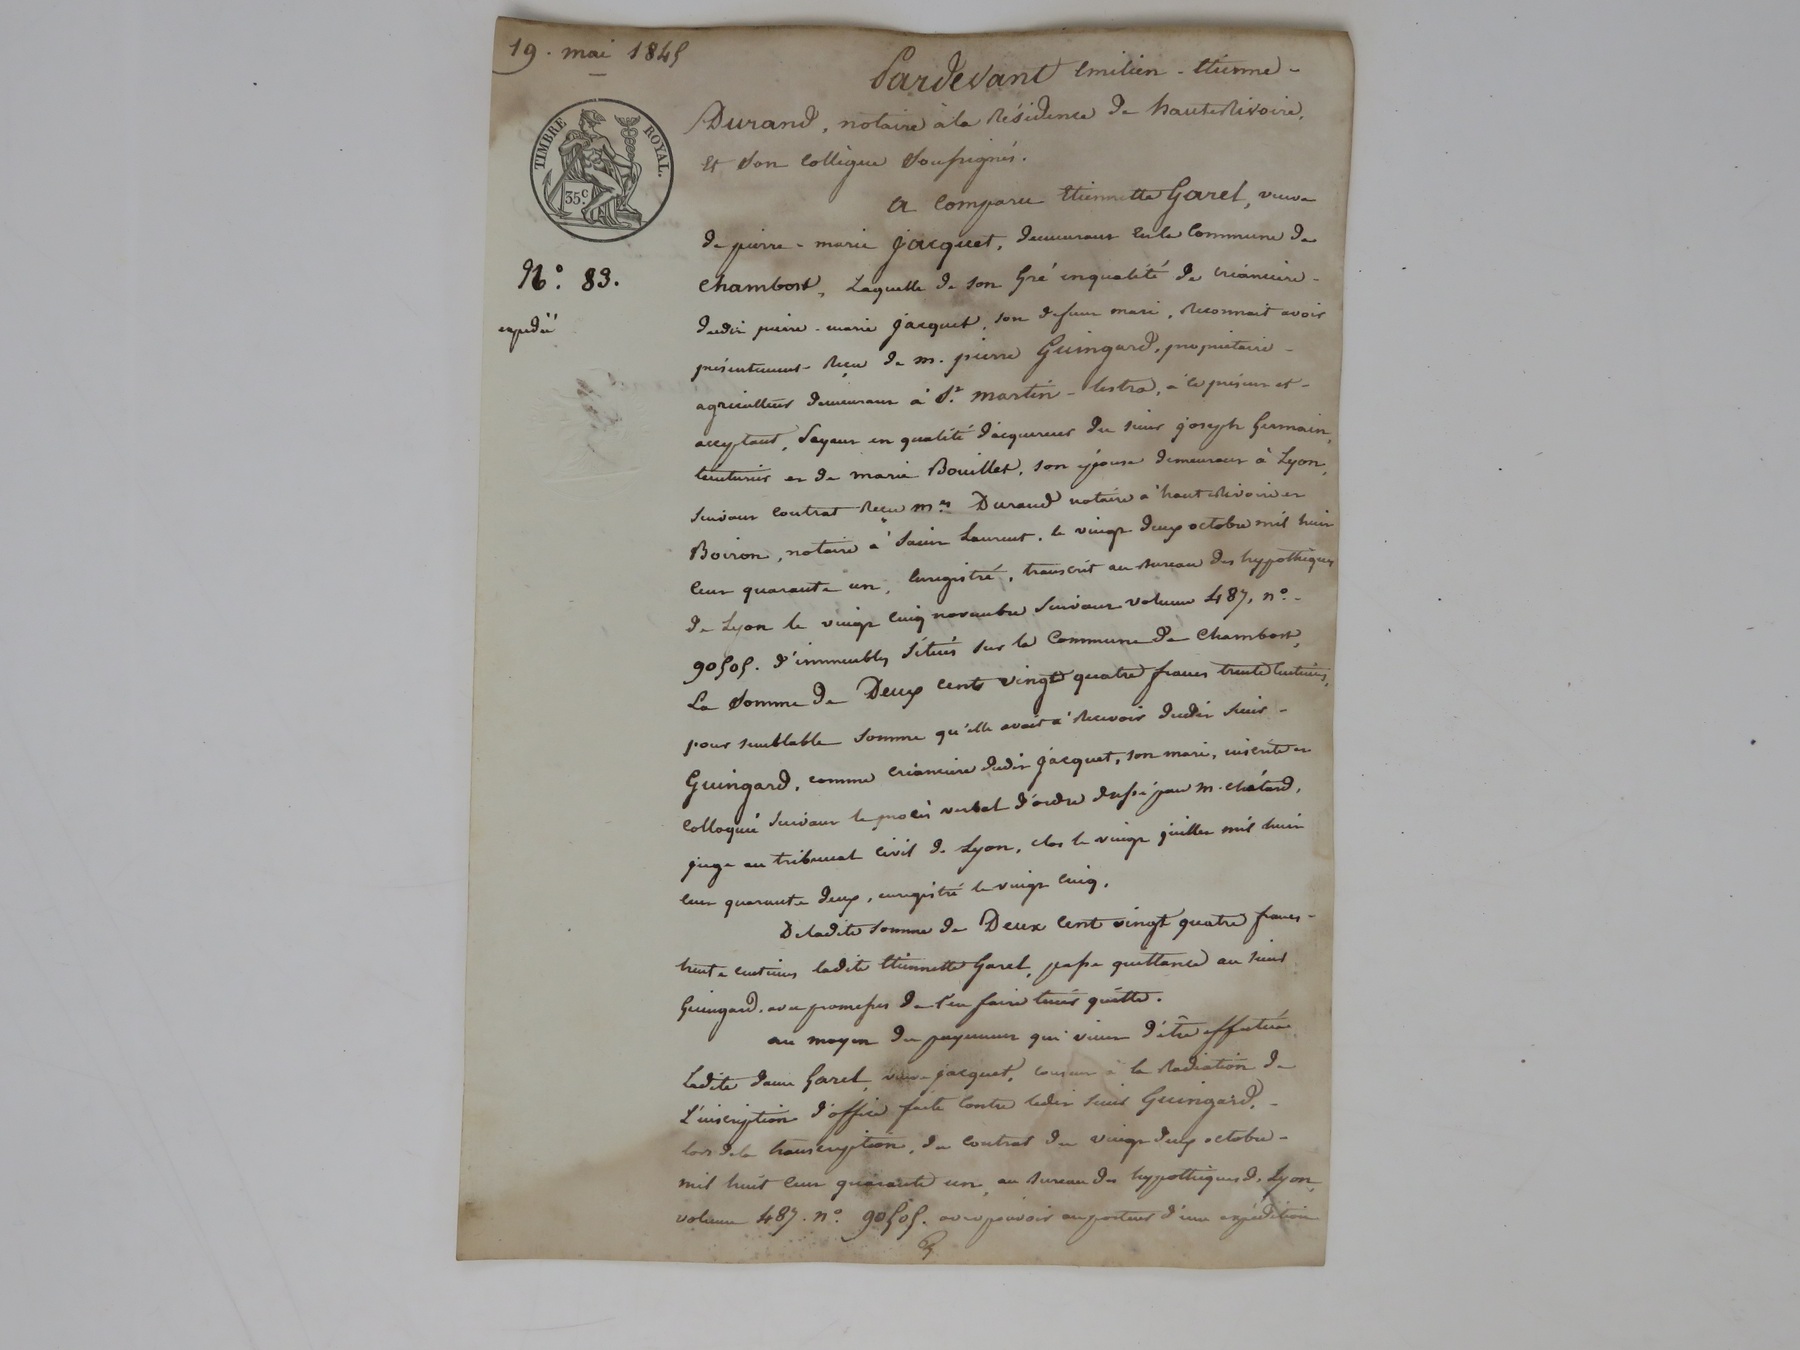 19. mai 1845
Pardevant Emilien - Etienne -
Durand, notaire à la Résidence de hauteRivoire,
Et son collègue soussignés.
TIMBRE ROYAL.
35 c.
a comparu Etiennette Garel, veuve
de pierre - marie jacquet, demeurant en la commune de
N.° 83.
chambost, Laquelle de son Gré en qualité de créancière -
expédié
dudit pierre - marie jacquet, son défunt mari, Reconnait avoir
présentement Reçu de m. pierre Guingard, propriétaire -
agriculteur demeurant à St. martin - lestra, à ce présent et -
acceptant, payant en qualité d'acquéreur du sieur joseph Germain,
teinturier et de marie Bouillet, son épouse demeurant à Lyon,
suivant contrat Reçu mes Durand notaire à hauteRivoire et
Boiron, notaire à Saint Laurent, le vingt deux octobre mil huit
cent quarante un, Enregistré, transcrit au Bureau des hypothèques
de Lyon le vingt cinq novembre suivant volume 487, n.° -
90505. d'immeubles situés sur la Commune de Chambost,
La somme de Deux cent vingt quatre francs trente centimes,
pour semblable somme qu'elle avait à Recevoir dudit sieur -
Guingard, comme créancière dudit jacquet, son mari, inscrite et
colloquée suivant le procès verbal d'ordre dressé par m. chatard,
juge au tribunal civil de Lyon, clos le vingt juillet mil huit
cent quarante deux, enregistré le vingt cinq.
De ladite somme de Deux cent vingt quatre francs -
trente centimes ladite Etiennette Garel, passe quittance au sieur
Guingard, avec promesses de l'en faire tenir quitte.
au moyen du payement qui vient d'être effectué
Ladite dame Garel, veuve jacquet, consent à la Radiation de
L'inscription d'office faite contre ledit sieur Guingard, -
lors de la transcription, du contrat du vingt deux octobre -
mil huit cent quarante un, au Bureau des hypothèques de Lyon,
volume 487. n.° 90505. avec pouvoir au porteur d'une expédition